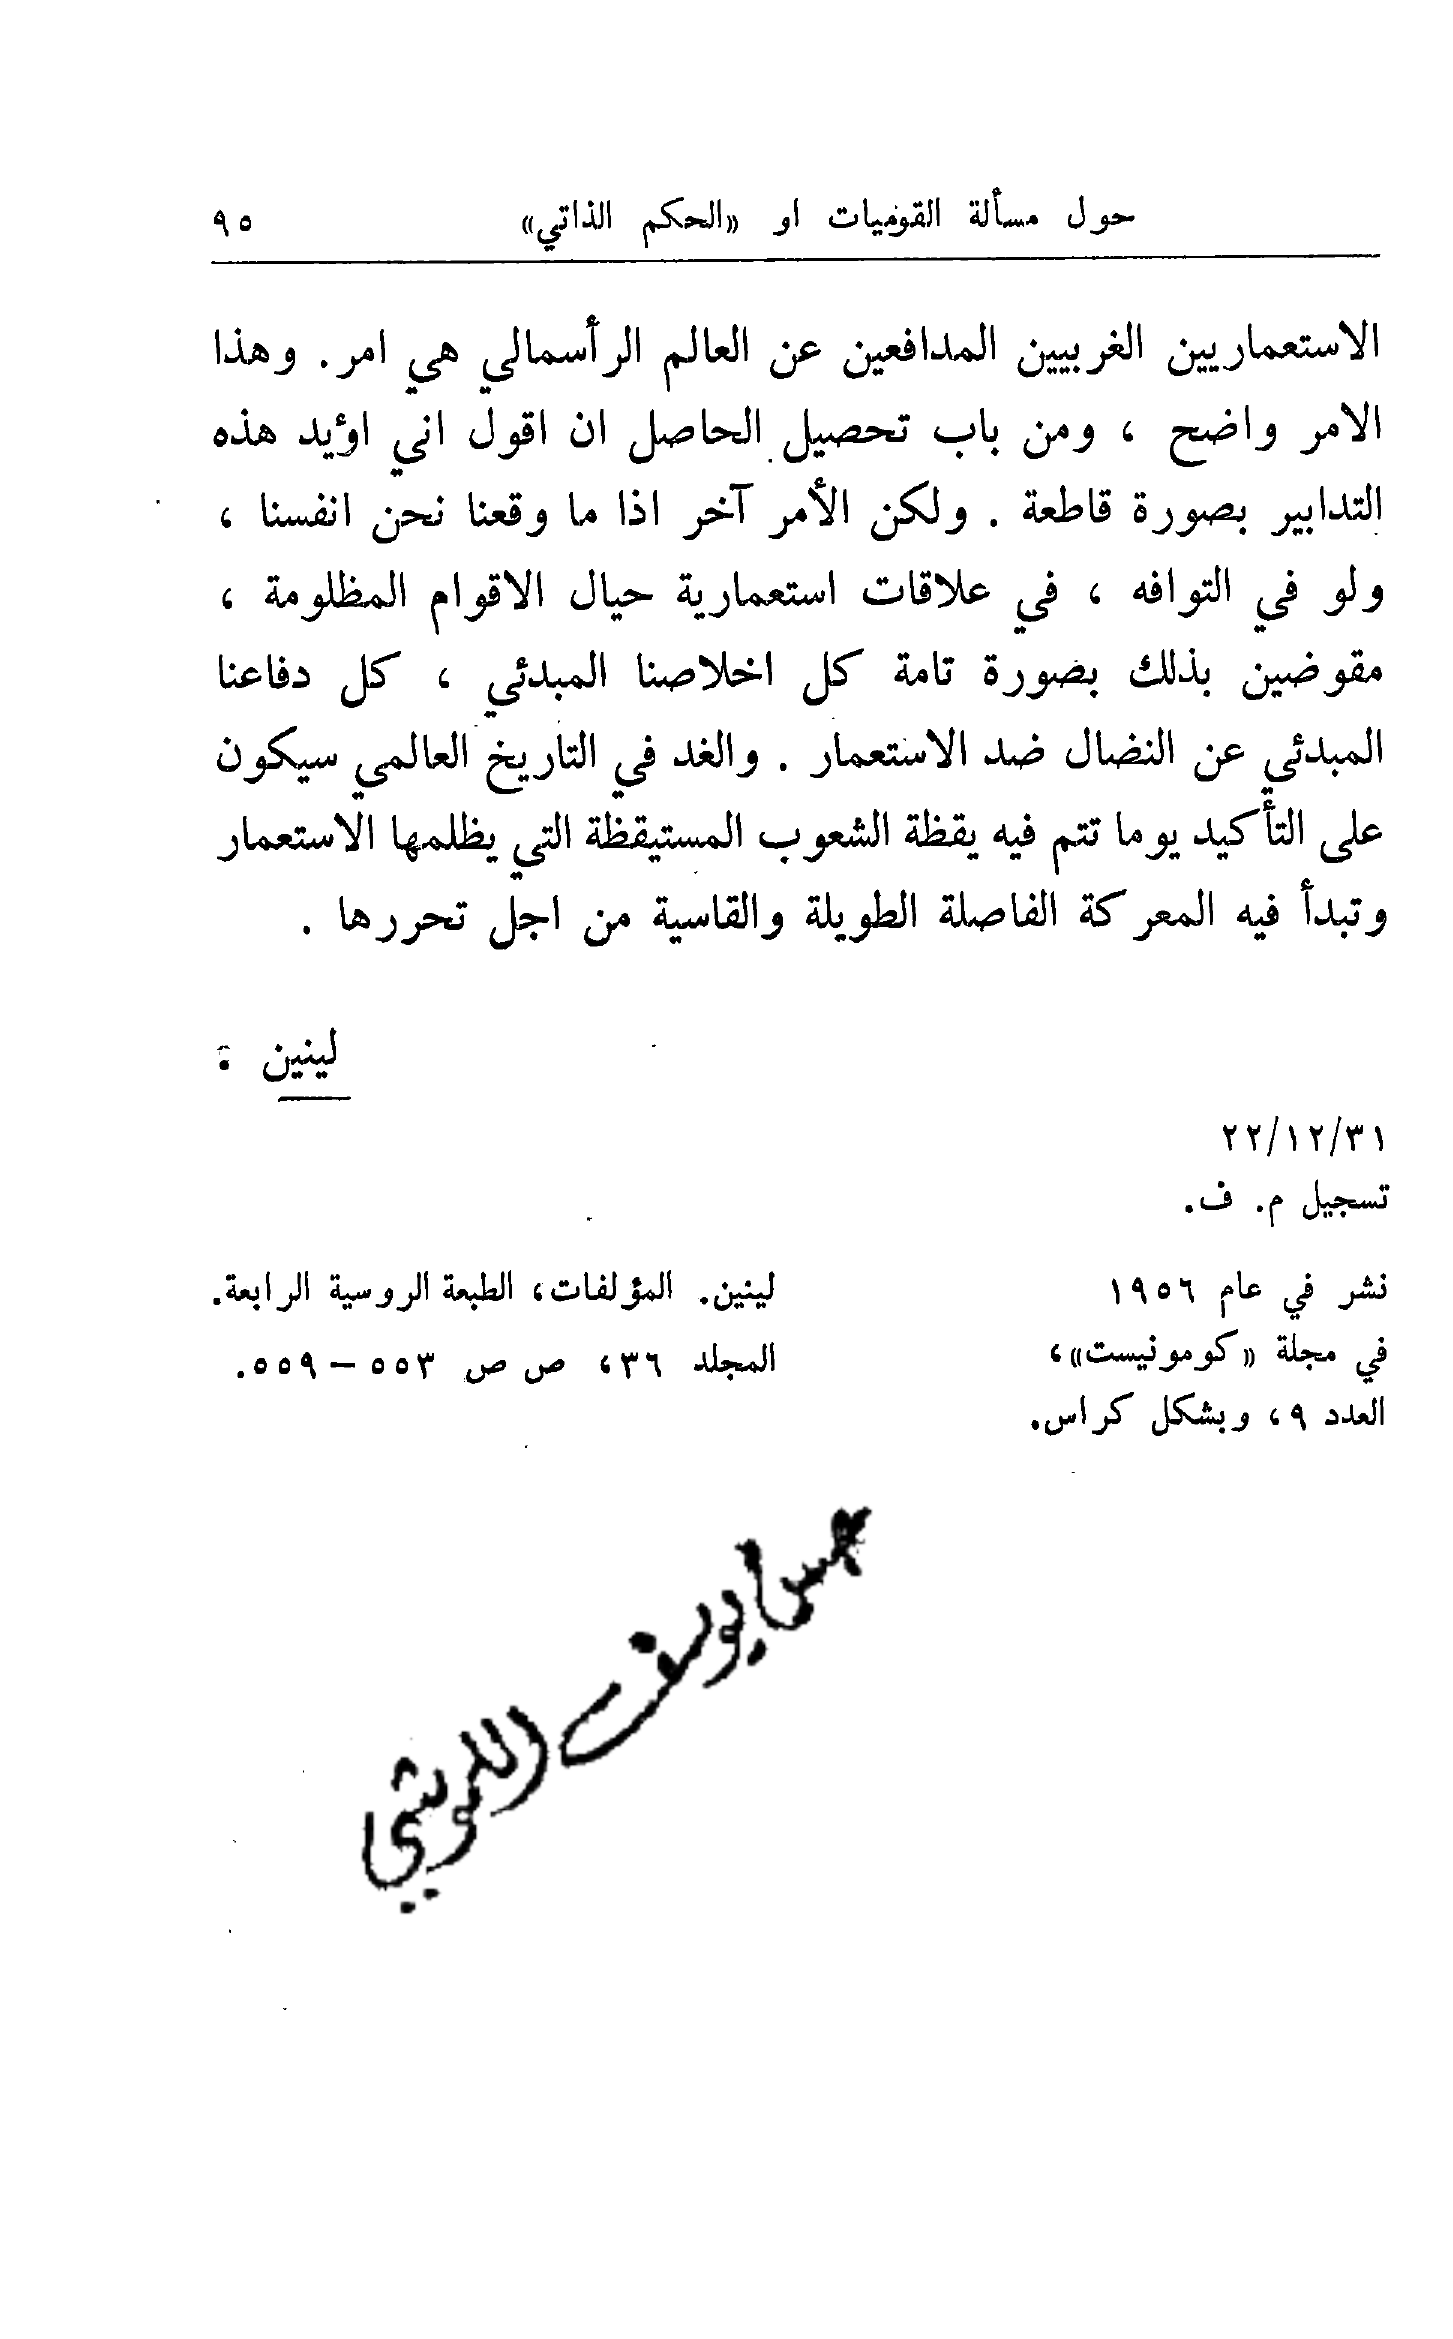 حول مسألة القوميات او «الحكم الذاتي» ٩٥
الاستعماريين الغربيين المدافعين عن العالم الرأسمالي هي امر. وهذا
الامر واضح ، ومن باب تحصيل الحاصل ان اقول اني اؤيد هذه
التدابير بصورة قاطعة . ولكن الأمر آخر اذا ما وقعنا نحن انفسنا ،
ولو في التوافه ، في علاقات استعمارية حيال الاقوام المظلومة ،
مقوضين بذلك بصورة تامة كل اخلاصنا المبدئي ، كل دفاعنا
المبدئي عن النضال ضد الاستعمار . والغد في التاريخ العالمي سيكون
على التأكيد يوما تتم فيه يقظة الشعوب المستيقظة التي يظلمها الاستعمار
وتبدأ فيه المعركة الفاصلة الطويلة والقاسية من اجل تحررها .
لينين :
٢٢/١٢/٣١
تسجيل م. ف.
نشر في عام ١٩٥٦
في مجلة «كومونيست»،
العدد ٩، وبشكل كراس.
لينين. المؤلفات، الطبعة الروسية الرابعة.
المجلد ٣٦، ص ص ٥٥٣ – ٥٥٩.
يوسف